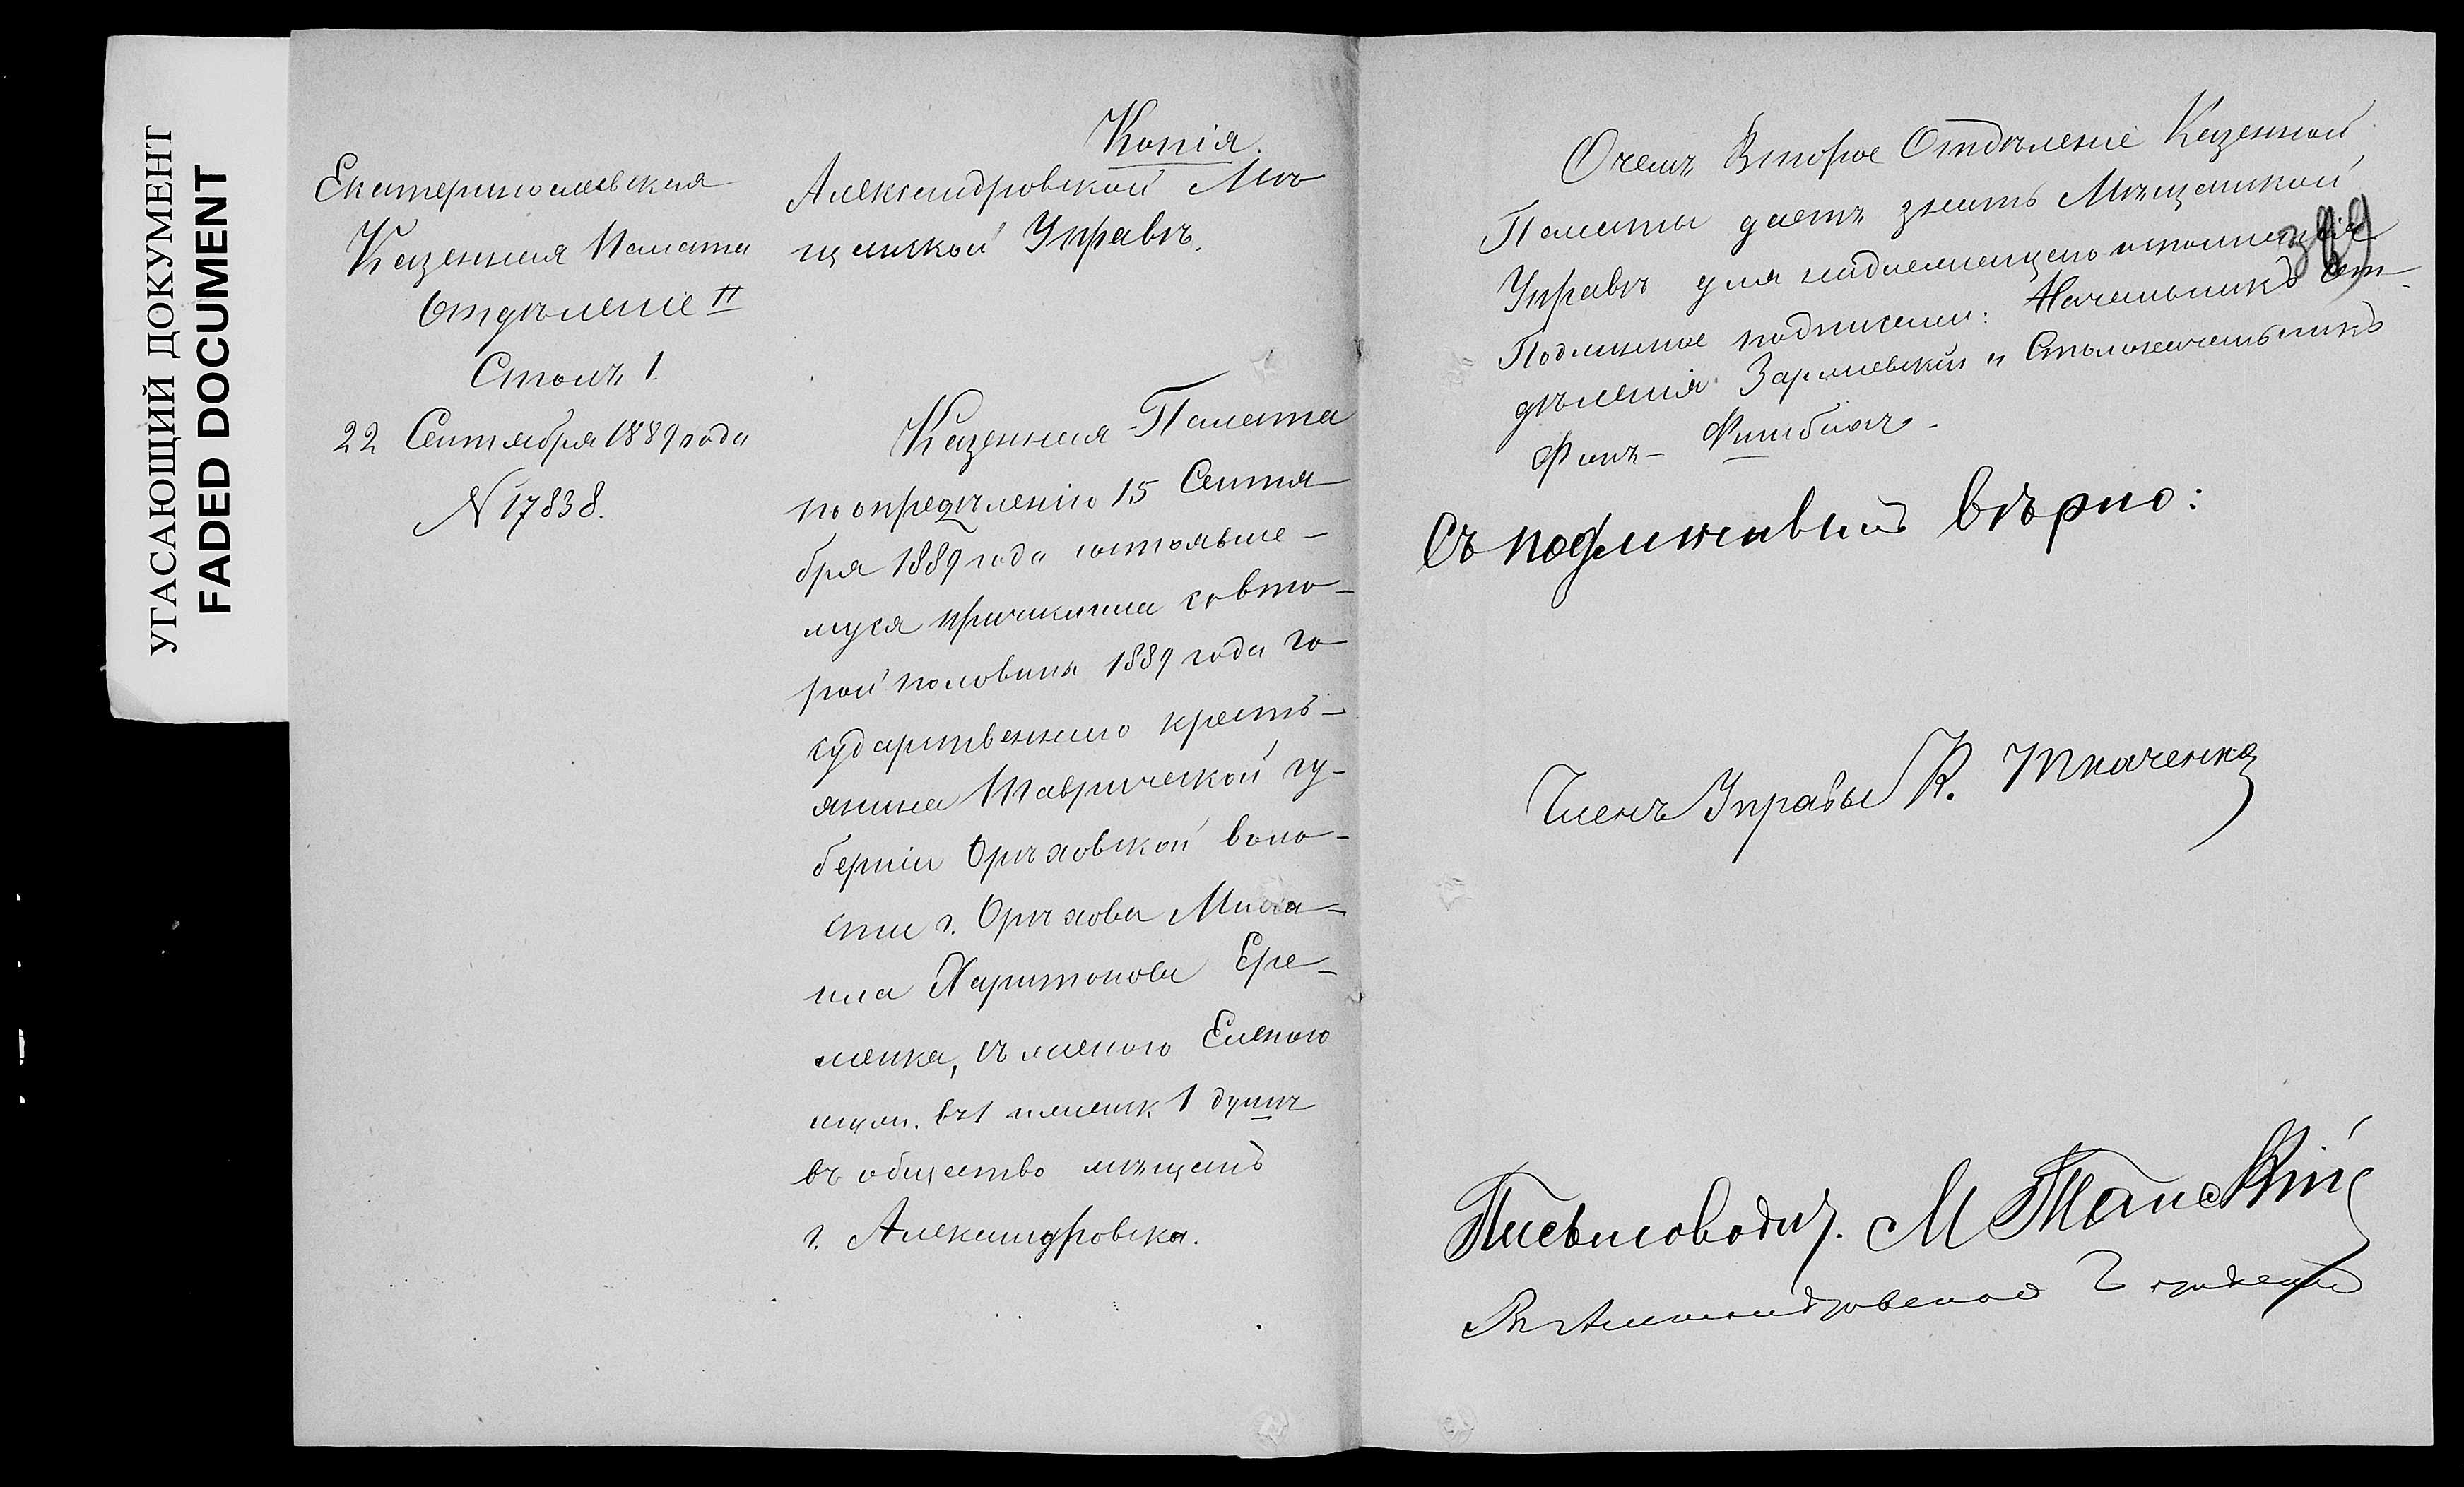 УГАСАЮЩИЙ ДОКУМЕНТ
FADED DOCUMENT
Екатеринославская
Казенная Палата
Отдѣленіе II
Столъ 1.
22 Сентября 1889 года
N 17838.
Копія.
Александровской Мѣ
щанской Управѣ.
Казенная Палата
по опредѣленію 15 Сентя
бря 1889 года состоявше-
муся причислила со вто-
рой половины 1889 года го
сударственнаго кресть-
янина Таврической гу-
берніи Орѣховской воло-
сти г. Орѣхова Миха-
ила Харитонова Ере-
менка, съ женою Еленою
въ 1 1 душѣ
въ общество мѣщанъ
г. Александровска.
О чемъ Второе Отдѣленіе Казенной
Палаты даетъ знать Мѣщанской
Управѣ для надлежащаго исполненія
389
Подлинное подписали: Начальникъ От-
дѣленія и Столоначальникъ
Фонъ-
Съ подлиннымъ вѣрно:
Членъ Управы К. Ткаченко
Письмоводит. М